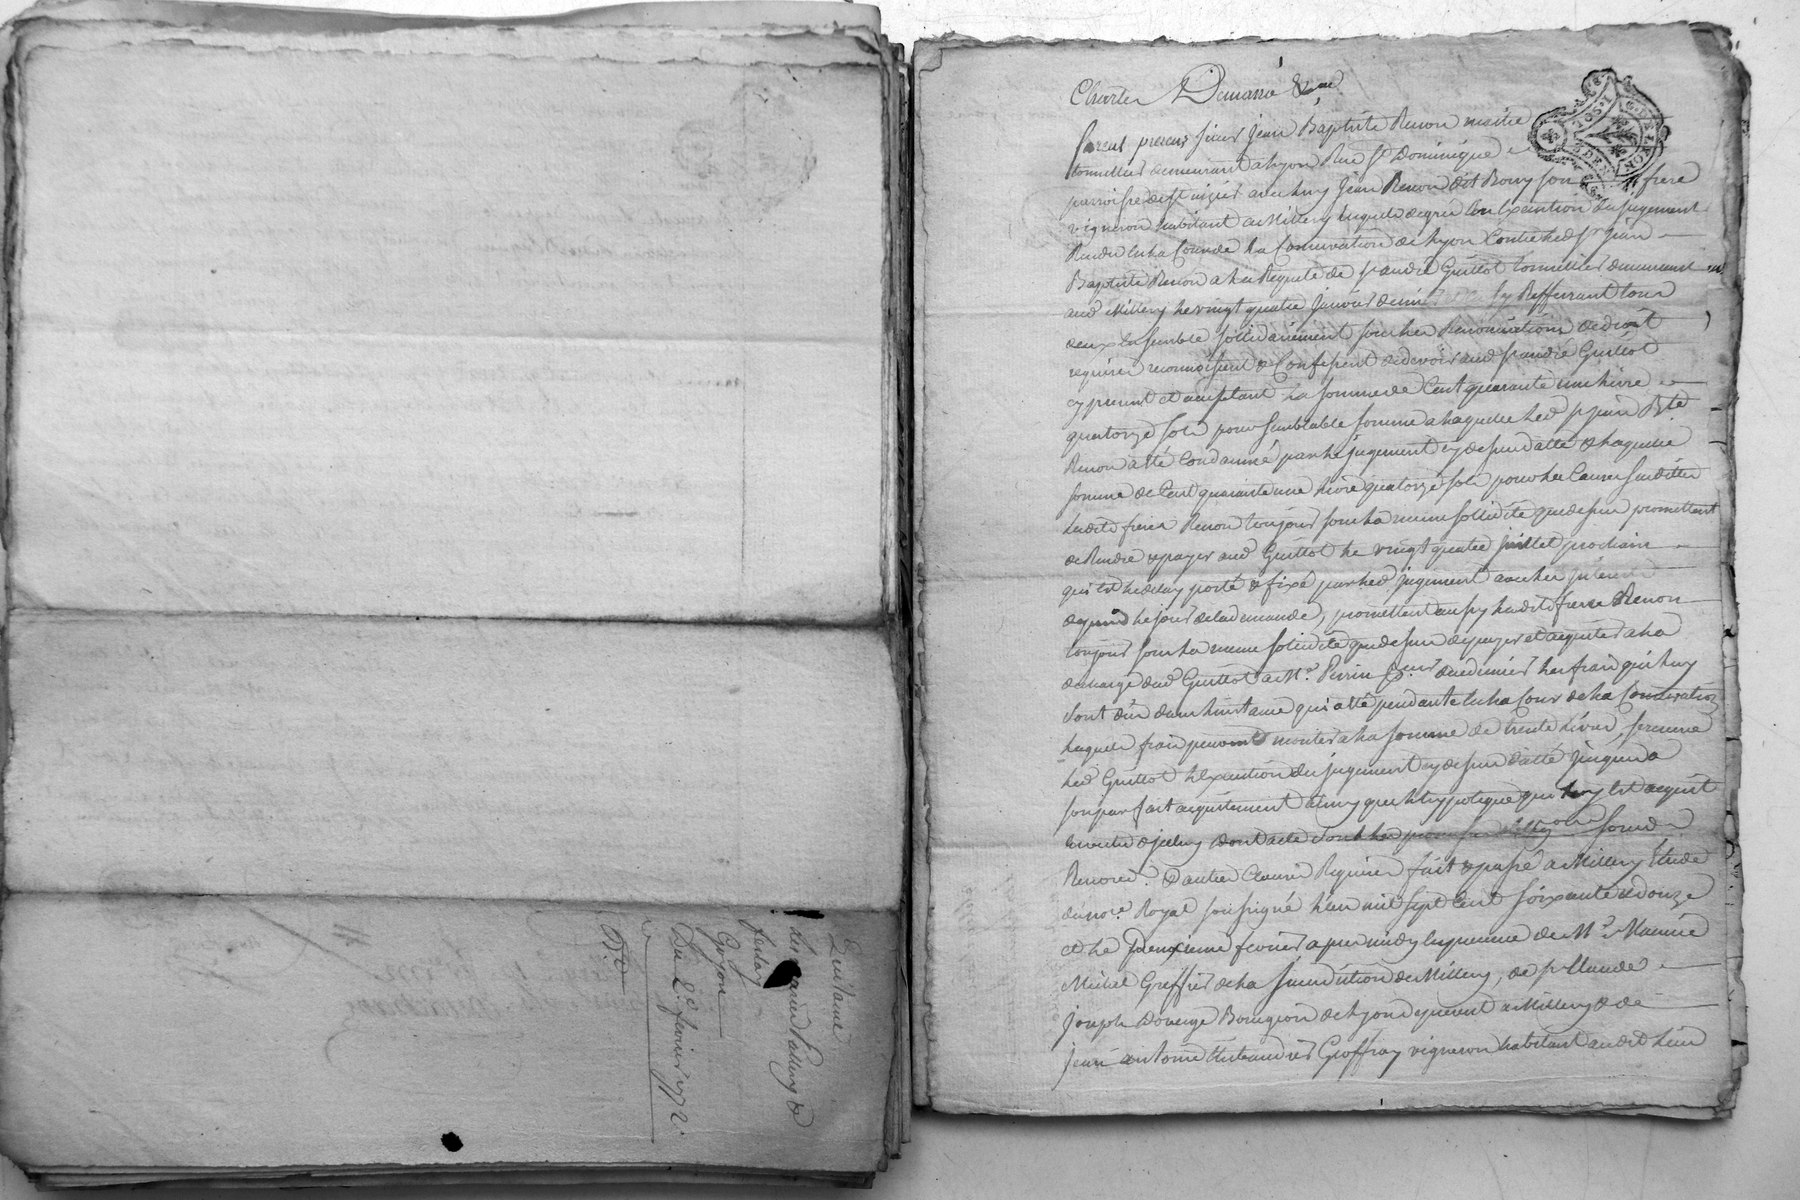 Quitance
fevlay
Goyon
Du 2e. fevrier 1772
Furent presens sieur Jean Baptiste Renon maitre
tonnellier demeurant a Lyon Rue St. Dominique
parroisse de st nizier avec luy Jean Renon dit Romy son frere
vigneron habitant a Millery lequels de gré en Execution du jugement
Rendu en la Cour de la Conservation de Lyon Contre led. sr. Jean
Baptiste Renon a la Requete de sr. andré Guillot tonnellier demeurant
aud. Millery le vingt quatre janvier dernier sy Refferrant tous
deux Ensemble sollidairement sous les Renonciations de droit
requises reconnoissent & Confessent devoir aud. sr. andré Guillot
cy present et acceptant la somme de Cent quarante une livre
quatorze sols pour semblable somme a laquelle led. sr. jean Bte.
Renon a été Condamné par le jugement cy dessus datté & laquelle
somme de Cent quarante une livre quatorze sols pour les Causes susdittes
lesdits freres Renon toujours sous la meme solidité que dessus promettent
de Rendre & payer aud. Guillot le vingt quatre juillet prochain
qui est le delay porté & fixé par led. jugement avec les interets
depuis le jour de la demande, promettent aussy lesdits freres Renon
toujours sous la meme solidité que dessus de payer et acquiter a la
decharge dud. Guillot a Me. Perrin ce dernier les frais qui luy
sont dus dans l'instance qui a été pendante en la Cour de la Conservation
lesquels frais peuvent monter a la somme de trente livres, se reserve
led. Guillot l'Execution du jugement cy dessus datté jusques a
son parfait acquittement ainsy que l'hypoteque qui luy est acquit
en vertu d'jceluy dont acte sous les
Renonce. & autres Clauses Requises fait & passé a Millery Etude
du nore. Royal soussigné L'an mil sept Cent soixante & douze
et le Deuxieme fevrier apres midy En presence de Me.
Michel Greffier de la jurisdiction de Millery, de sr. Claude
Joseph Bourgeois de Lyon de present a Millery & de
jean antoine Geoffray vigneron habitant audit Lieu